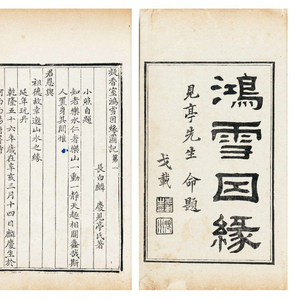 鴻雪因緣
見亭先生命題
戈載
凝香室鴻雪因緣圖記第一
長白麟 慶見亭氏著
小照自題
知者樂水仁者樂山一動一靜天趣相關
人置身其間惟
君恩與
祖德故幸邀山水之緣
乾隆五十六年歲在辛亥三月十四日麟慶生於